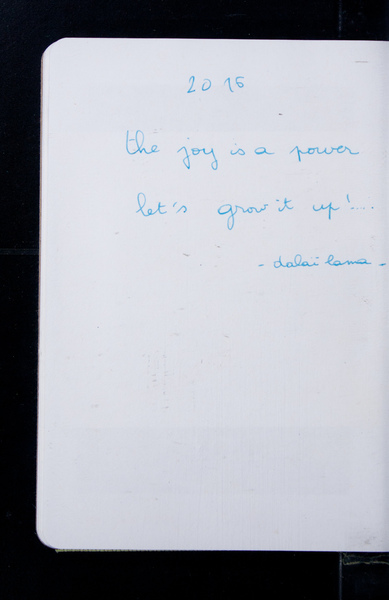 2016
the joy is a power
let's grow it up!....
- dalai lama -